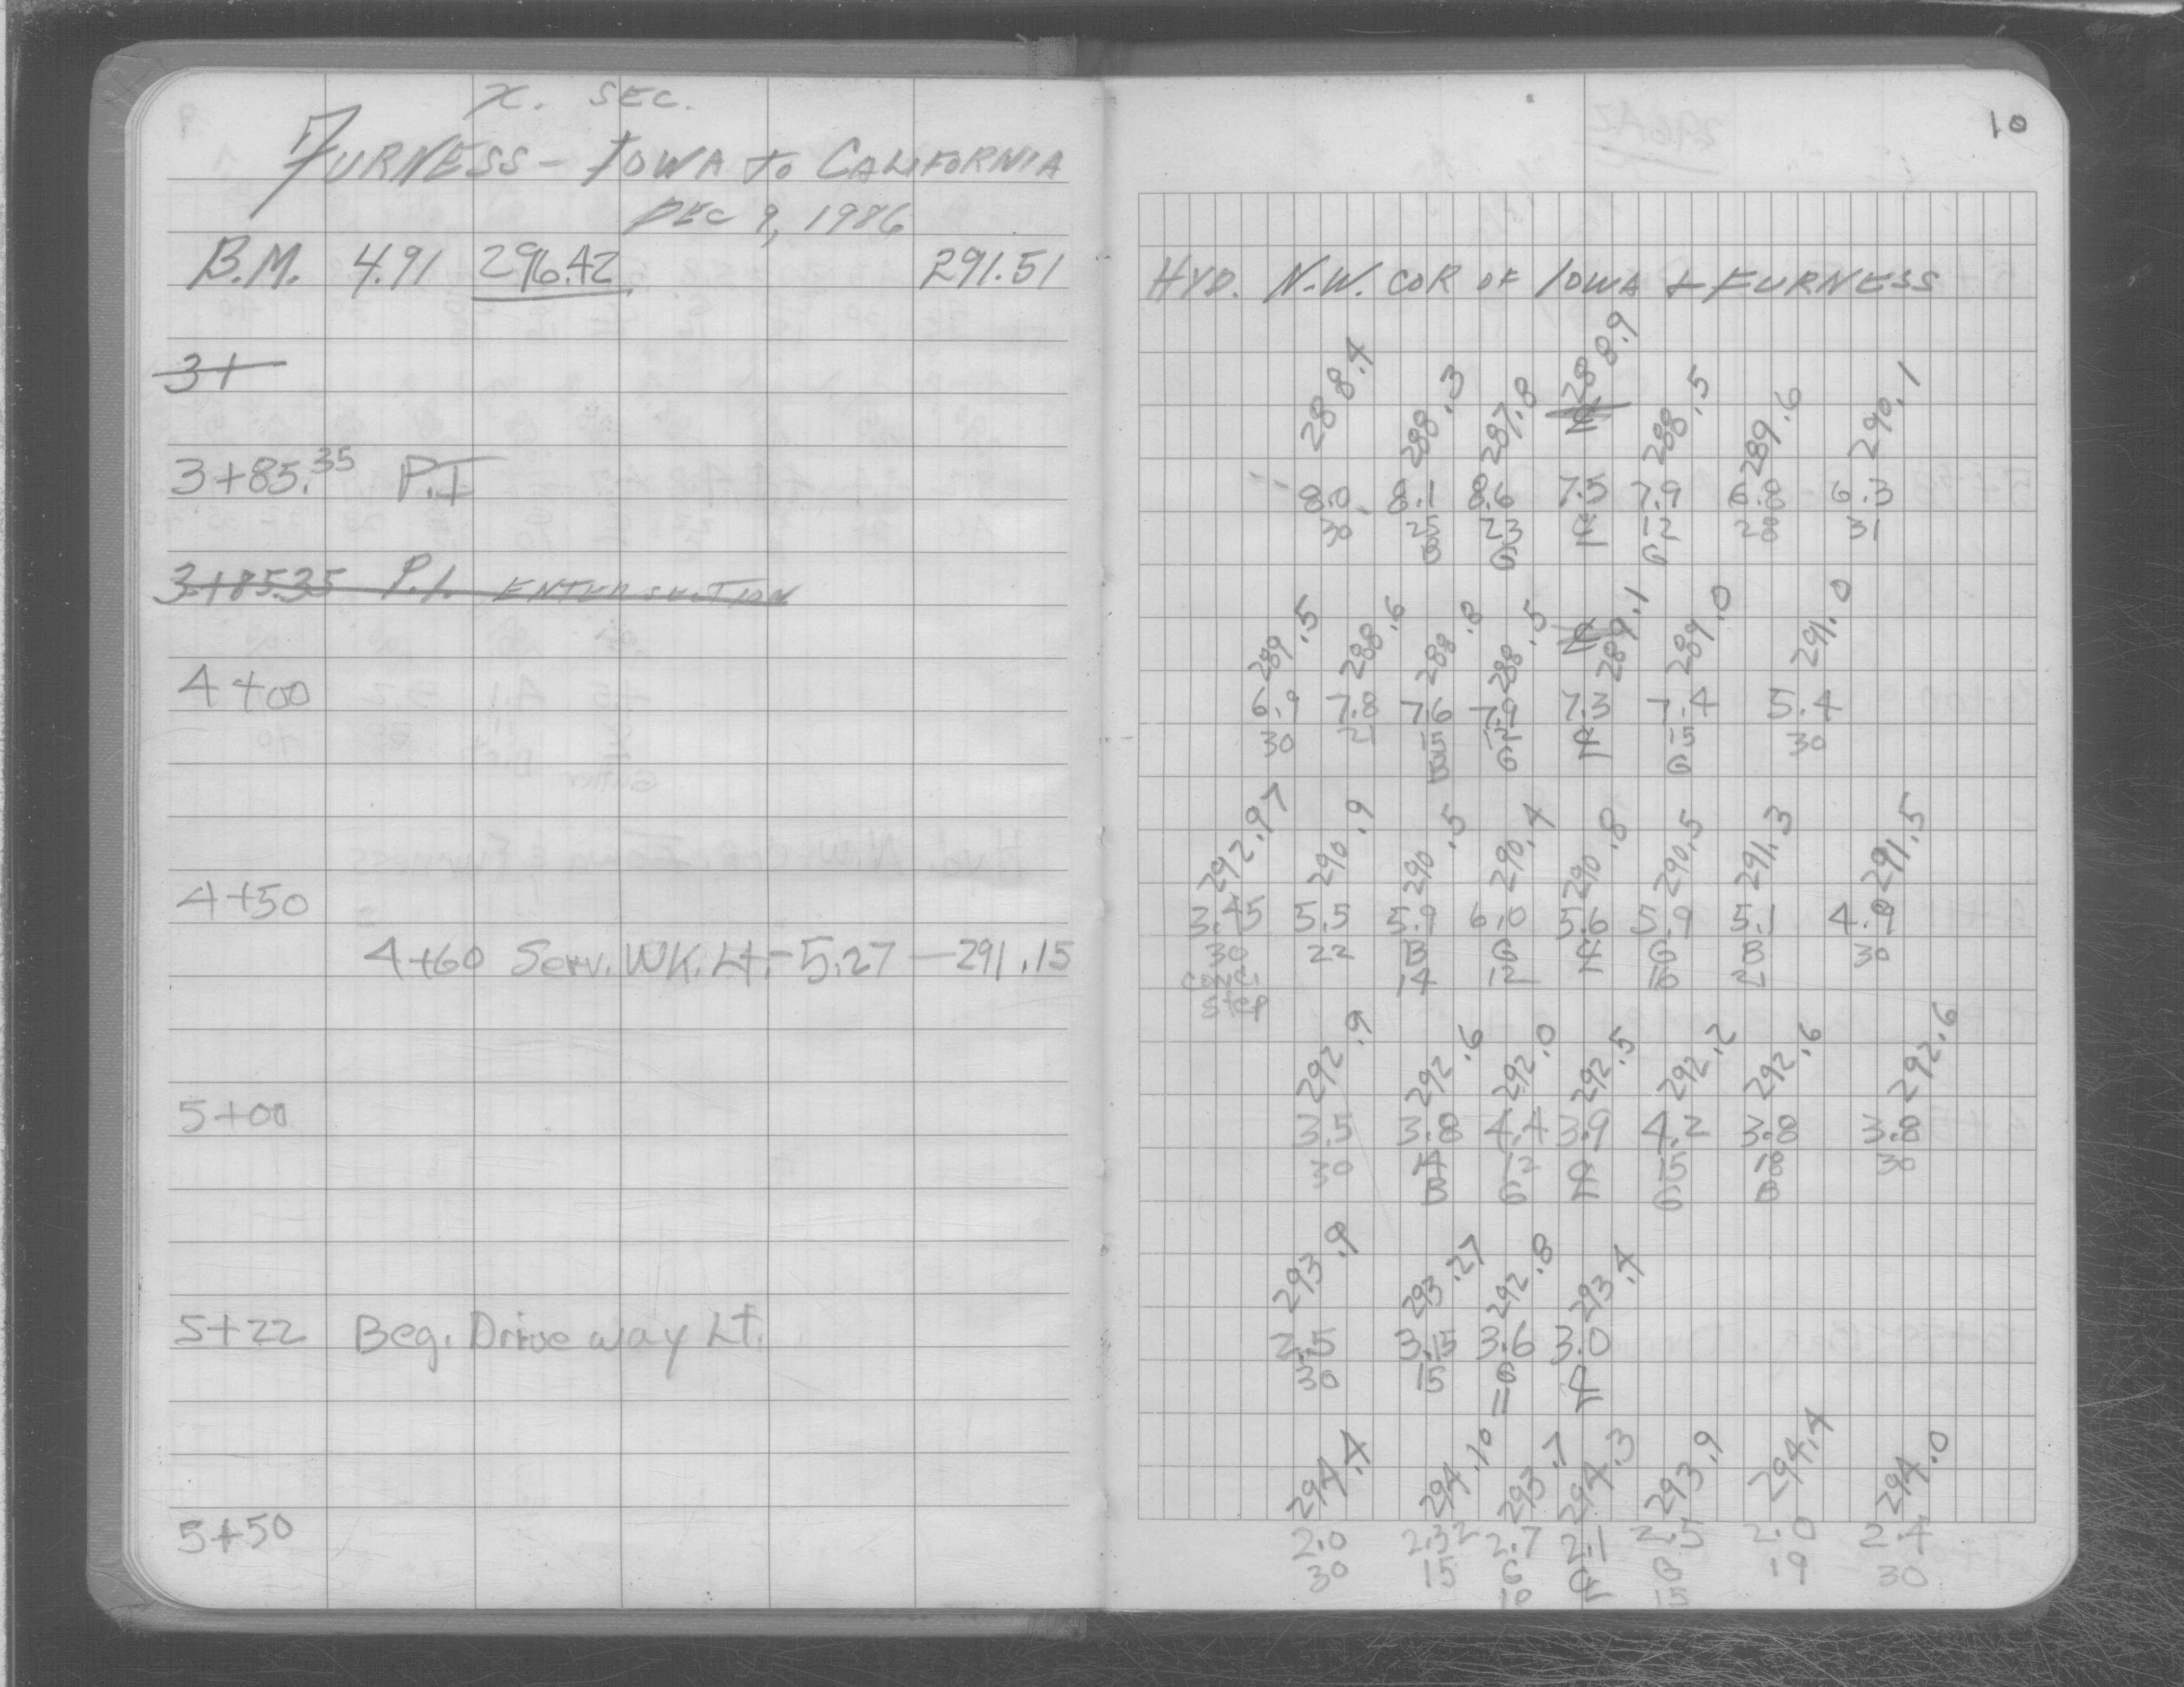 X. SEC.
FURNESS - IOWA to CALIFORNIA
DEC 9, 1986
B.M. 4.91 296.42 291.51
3+
3+85.35 P.I
3+85.35 P.I. ENTER SECTION
4+00
4+50
4+60 Serv. WK. Lt. - 5.27 - 291.15
5+00
5+22 Beg. Drive way Lt.
5+50
10
HYD. N.W. COR OF IOWA + FURNESS
288.4 288.3 287.8 288.9 288.5 289.6 290.1
8.0 8.1 8.6 7.5 7.9 6.8 6.3
30 25 23 ℄ 12 28 31
B G G
289.5 288.6 288.8 288.5 ℄ 289.1 289.0 291.0
6.9 7.8 7.6 7.9 7.3 7.4 5.4
30 21 15 12 ℄ 15 30
B G G
292.97 290.9 290.5 290.4 290.8 290.5 291.3 291.5
3.45 5.5 5.9 6.0 5.6 5.9 5.1 4.9
30 22 B G ℄ G B 30
conc. 14 12 16 21
step
292.9 292.6 292.0 292.5 292.2 292.6 292.6
3.5 3.8 4.4 3.9 4.2 3.8 3.8
30 14 12 ℄ 15 18 30
B G G B
293.9 293.27 292.8 293.4
2.5 3.15 3.6 3.0
30 15 G ℄
11
294.4 294.10 293.7 294.3 293.9 294.4 294.0
2.0 2.32 2.7 2.1 2.5 2.0 2.4
30 15 G ℄ G 19 30
10 15